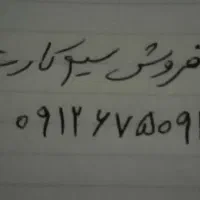 فروش سیم کارت
۰۹۱۲۶۷۵۰۹